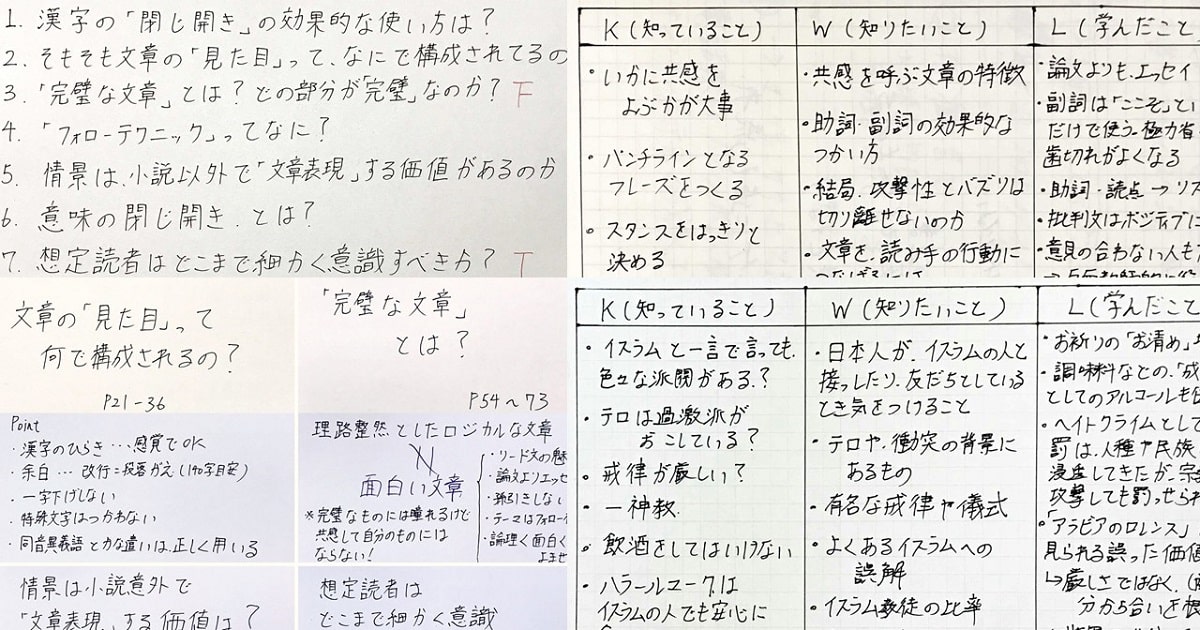 1. 漢字の「閉じ開き」の効果的な使い方は？
2. そもそも文章の「見た目」って、なにで構成されてるの
3. 「完璧な文章」とは？どの部分が「完璧」なのか？ F
4. 「フォローテクニック」ってなに？
5. 情景は、小説以外で「文章表現」する価値があるのか
6. 意味の閉じ開き、とは？
7. 想定読者はどこまで細かく意識すべきか？ T
文章の「見た目」って
何で構成されるの？
P21-36
Point
・漢字のひらき…感覚でOK
・余白…改行＝段落がえ(140字目安)
・一字下げしない
・特殊文字はつかわない
・同音異義語とかな遣いは、正しく用いる
「完璧な文章」
とは？
P54～73
理路整然としたロジカルな文章
面白い文章
※完璧なものには憧れるけど
共感して自分のものには
ならない！
・リード文の魅
・論文よりエッセ
・孫引きしない
・テーマはフォロー
・論理く面白く
よませ
情景は小説意外で
「文章表現」する価値は？
想定読者は
どこまで細かく意識
K(知っていること)
・いかに共感を
よぶかが大事
・パンチラインとなる
フレーズをつくる
・スタンスをはっきりと
決める
W(知りたいこと)
・共感を呼ぶ文章の特徴
・助詞・副詞の効果的な
つかい方
・結局、攻撃性とバズりは
切り離せないのか
・文章を、読み手の行動に
L(学んだこと
・論文よりも、エッセイ
・副詞は「ここぞ」とい
だけで使う。極力省
歯切れがよくなる
・助詞・読点→リズ
・批判文はポジティブに
・意見の合わない人も
K(知っていること)
・イスラムと一言で言っても、
色々な派閥がある？
・テロは過激派が
おこしている？
・戒律が厳しい？
・一神教
・飲酒をしてはいけない
・ハラールマークは
イスラムの人でも安心に
W(知りたいこと)
・日本人が、イスラムの人と
接っしたり、友だちとしている
とき気をつけること
・テロや、衝突の背景に
あるもの
・有名な戒律や儀式
・よくあるイスラムへの
誤解
・イスラム教徒の比率
L(学んだこと
・お祈りの「お清め」
・調味料などの、「成
としてのアルコールも
・ヘイトクライムとして
罰は、人種や民族
浸透してきたが、宗
攻撃しても罰せられ
・「アラビアのロレンス」
見られる誤った価値
↳厳しさではなく、
分かち合いを